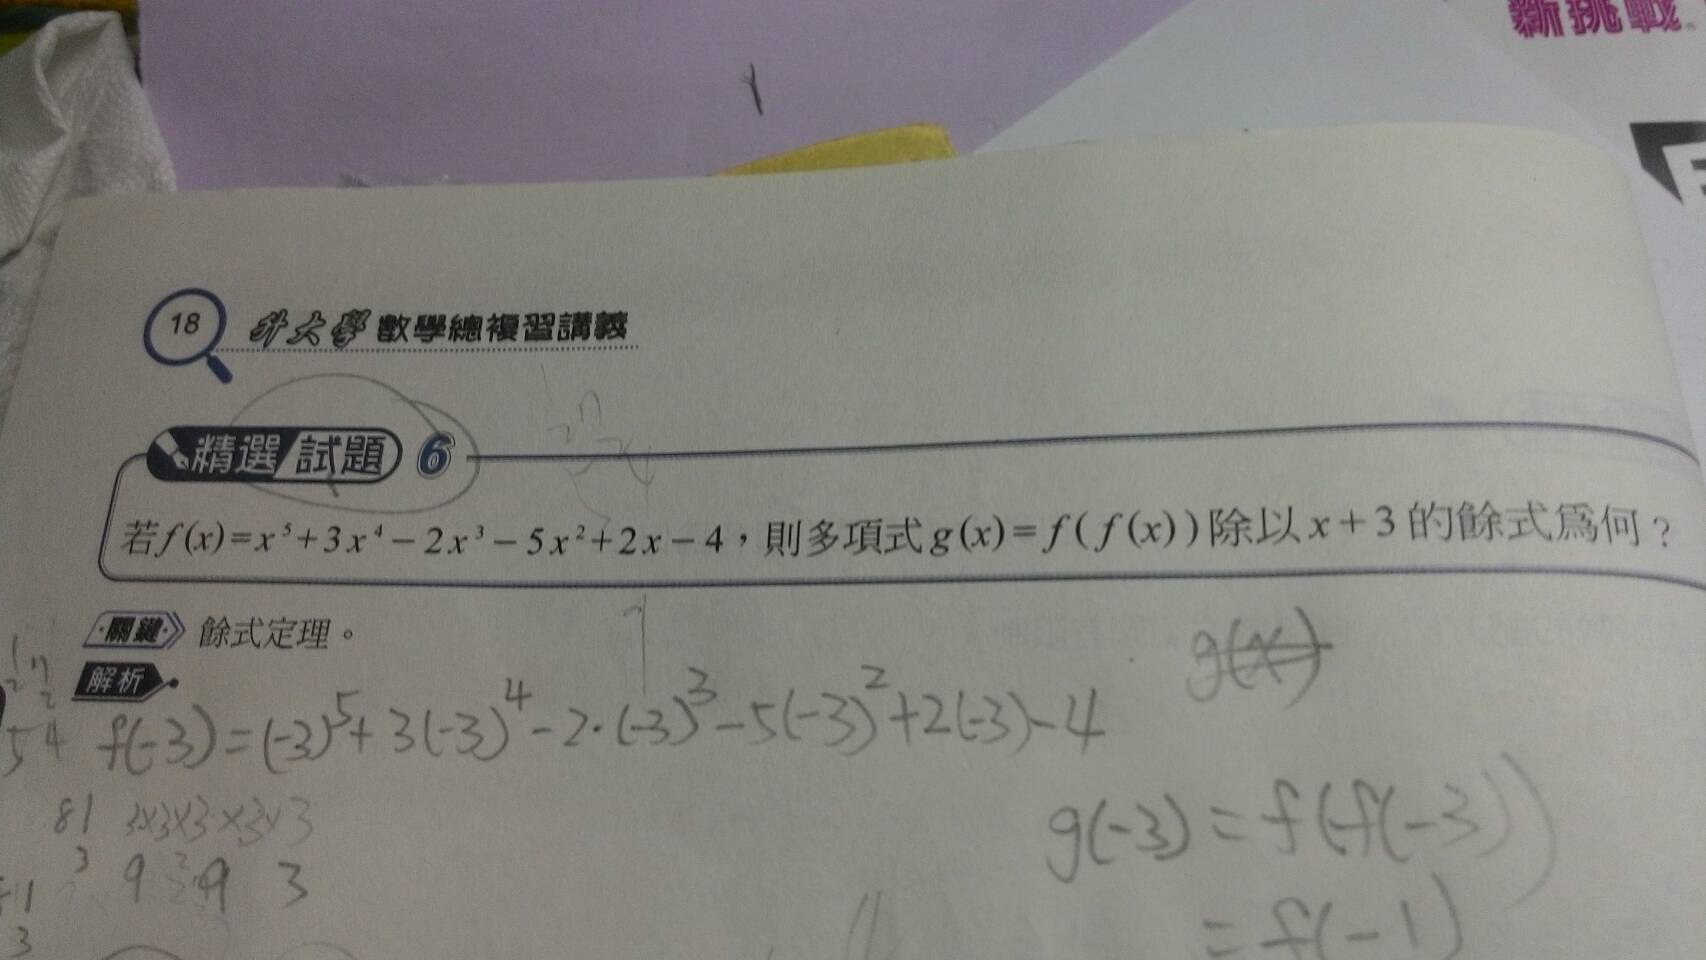 新挑戰
18 升大學 數學總複習講義
精選試題 6
若f(x)=x⁵+3x⁴−2x³−5x²+2x−4，則多項式g(x)=f(f(x))除以x+3的餘式為何？
關鍵 餘式定理。
解析
f(-3)=(-3)⁵+3(-3)⁴-2·(-3)³-5(-3)²+2(-3)-4
54
81 3×3×3×3×3
3 9 9 3
g(-3)=f(f(-3))
=f(-1)
3